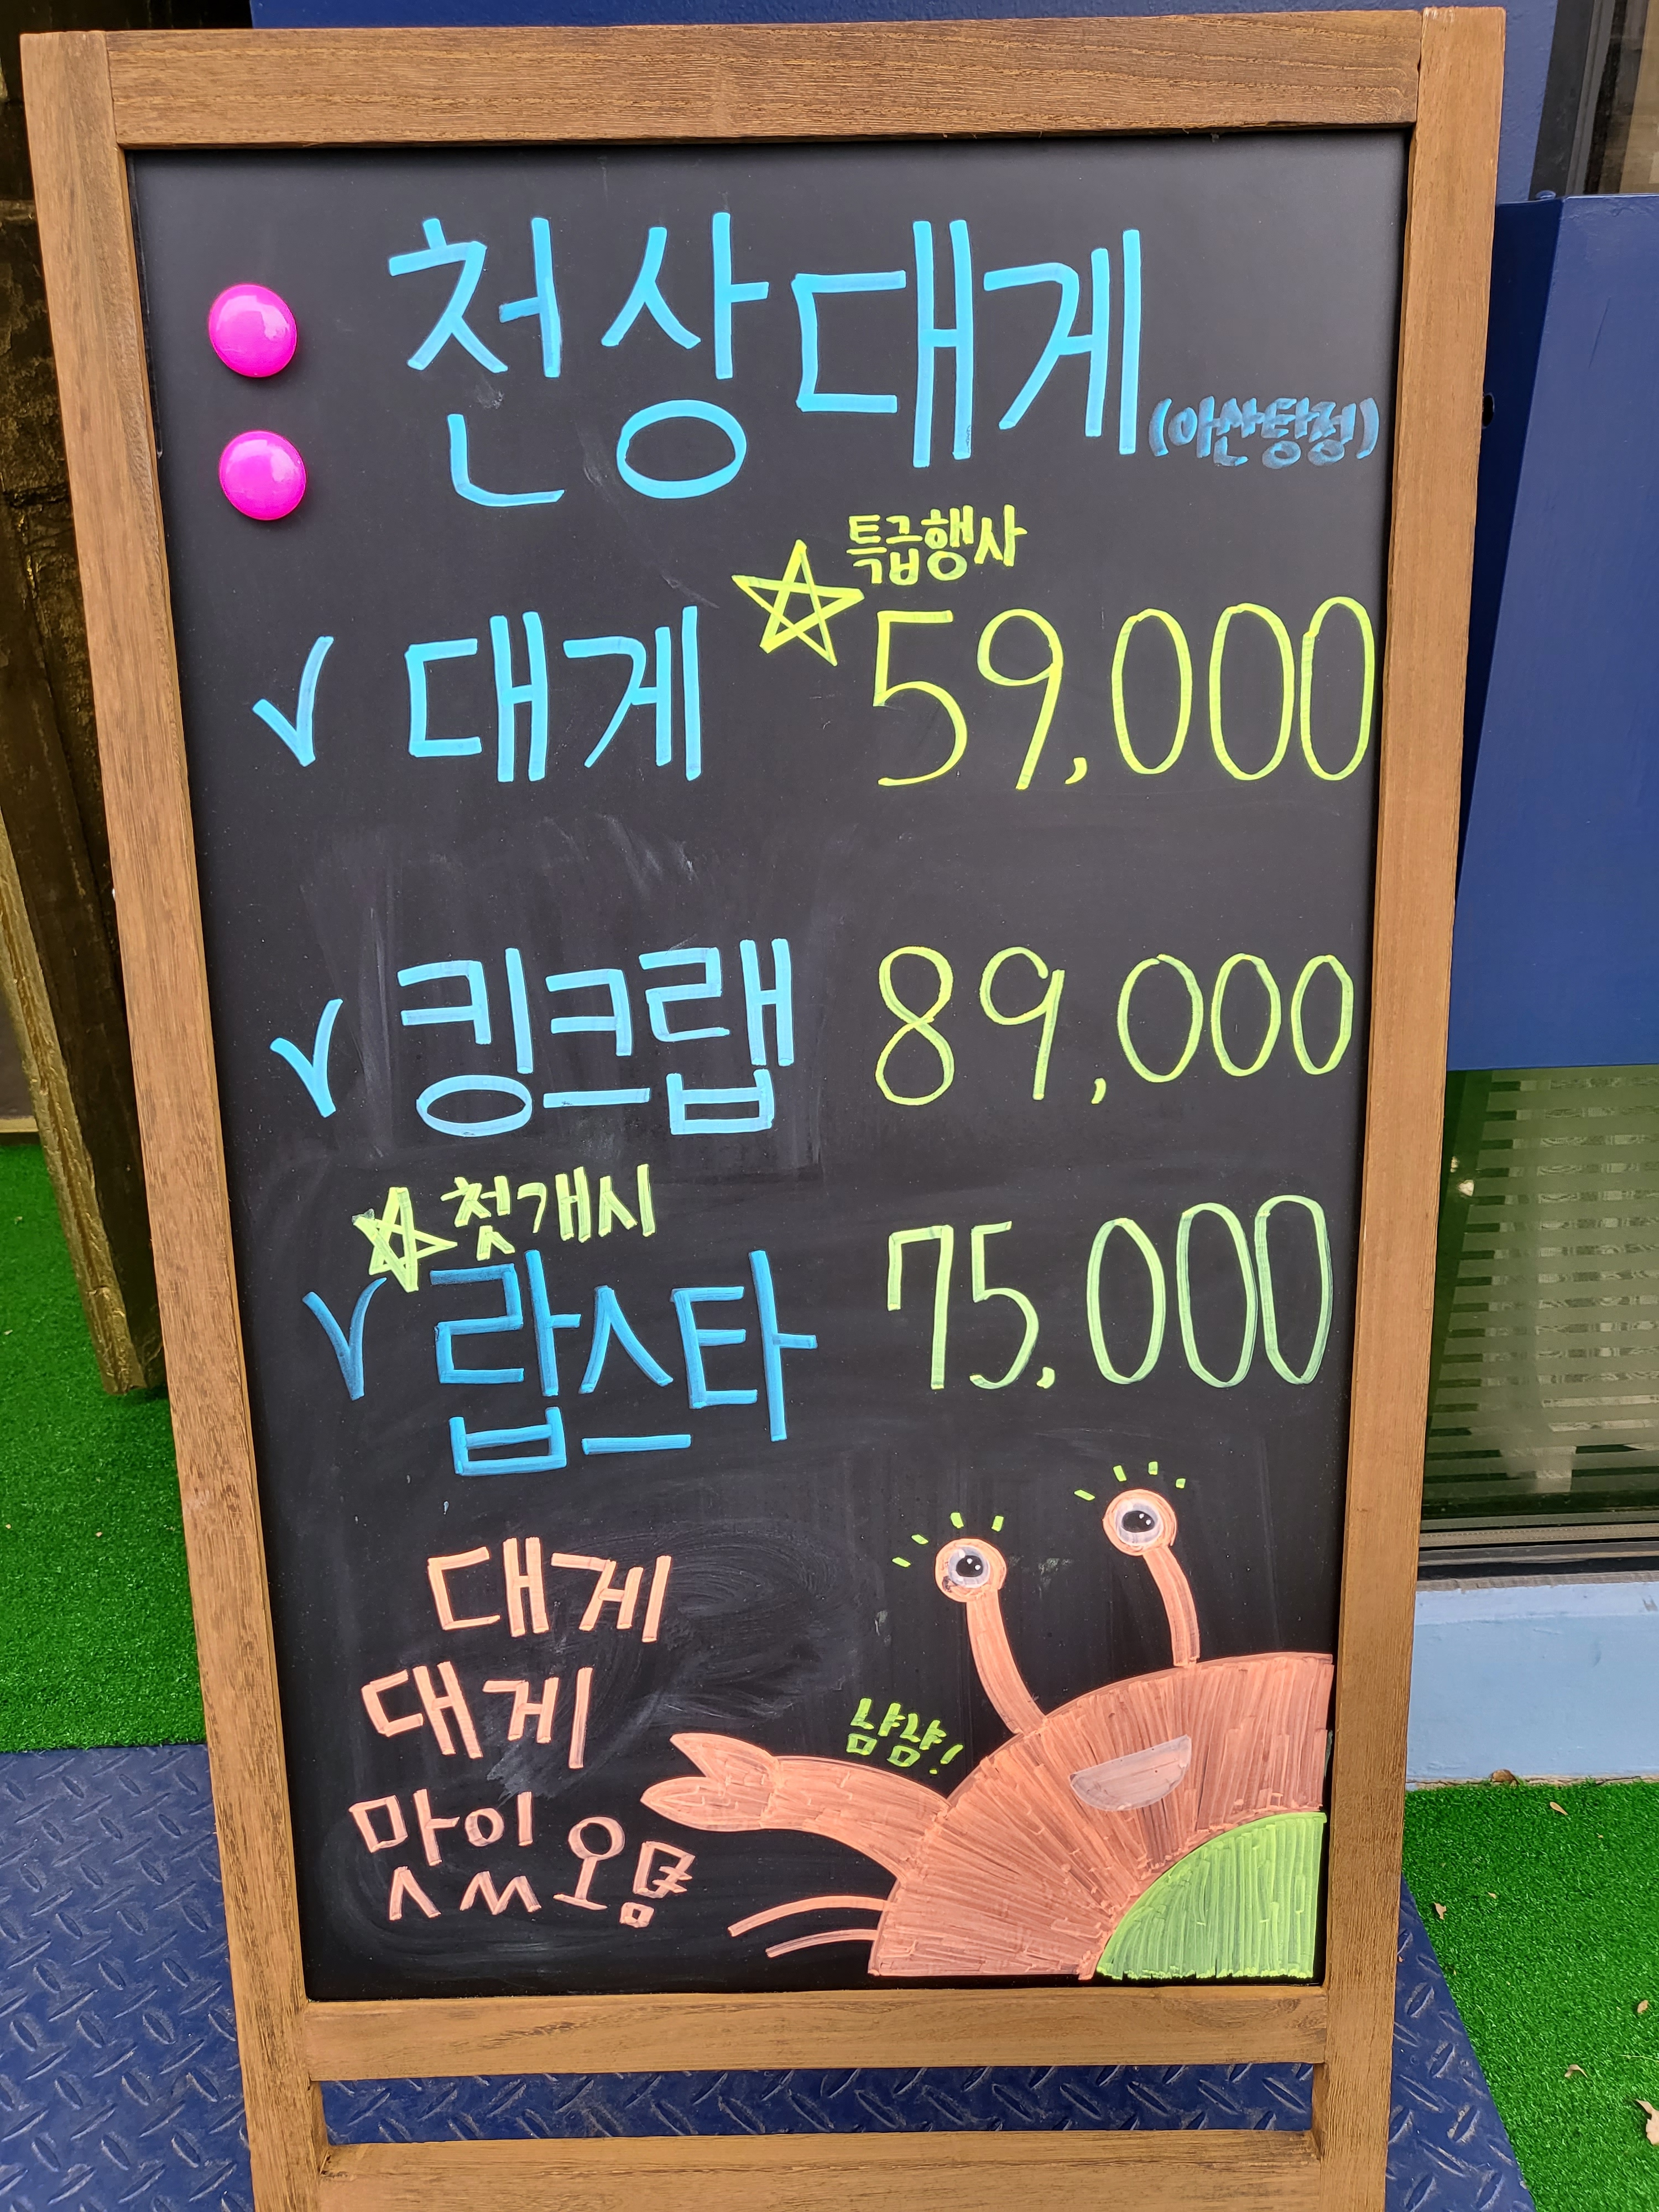 천상대게 (아산탕정)
특급행사
대게 59,000
킹크랩 89,000
첫개시
랍스타 75,000
대게
대게
맛있오욤
냠냠!